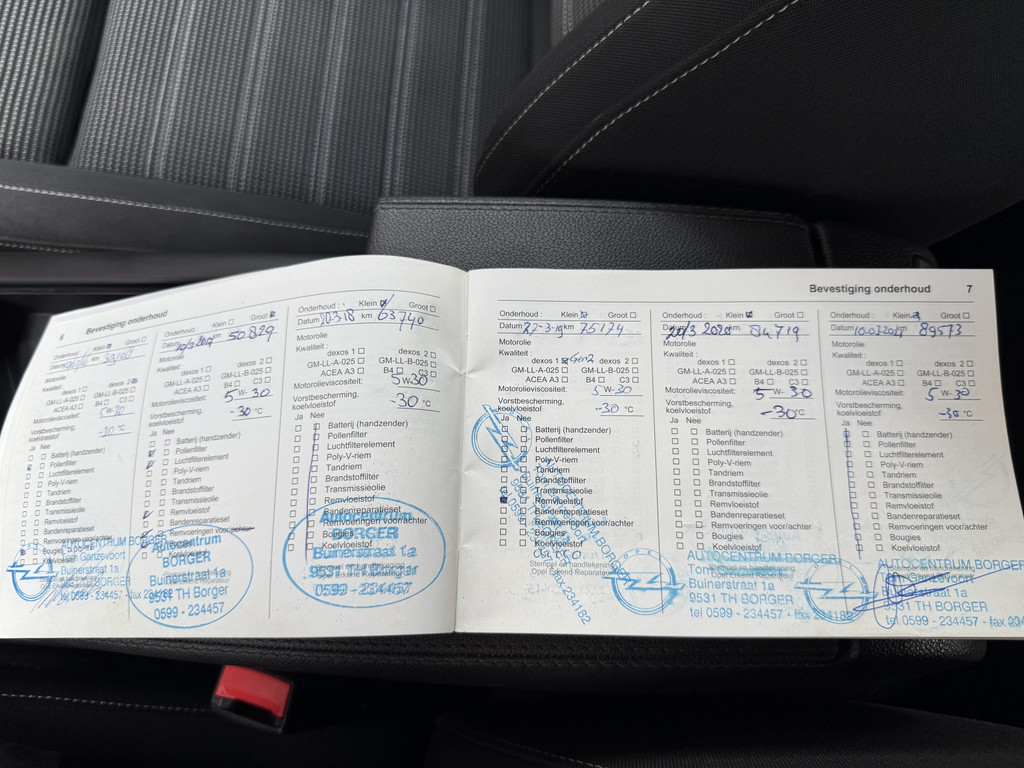 6 Bevestiging onderhoud
Onderhoud: Klein Groot
Datum km
Motorolie
Kwaliteit: dexos 1 dexos 2
GM-LL-A-025 GM-LL-B-025
ACEA A3 B4 C3
Motorolieviscositeit: 5W-30
Vorstbescherming,
koelvloeistof -30 °C
Ja Nee
Batterij (handzender)
Pollenfilter
Luchtfilterelement
Poly-V-riem
Tandriem
Brandstoffilter
Transmissieolie
Remvloeistof
Bandenreparatieset
Remvoeringen voor/achter
Bougies
Koelvloeistof
AUTOCENTRUM BORGER
Ganzevoort
Buinerstraat 1a
9531 TH BORGER
tel 0599 - 234457 - fax
Onderhoud: Klein Groot
Datum km 50829
Motorolie
Kwaliteit: dexos 1 dexos 2
GM-LL-A-025 GM-LL-B-025
ACEA A3 B4 C3
Motorolieviscositeit: 5W-30
Vorstbescherming,
koelvloeistof -30 °C
Ja Nee
Batterij (handzender)
Pollenfilter
Luchtfilterelement
Poly-V-riem
Tandriem
Brandstoffilter
Transmissieolie
Remvloeistof
Bandenreparatieset
Remvoeringen voor/achter
Bougies
Koelvloeistof
Autocentrum
BORGER
Buinerstraat 1a
9531 TH Borger
0599 - 234457
Onderhoud: Klein Groot
Datum 20-3-18 km 63740
Motorolie
Kwaliteit: dexos 1 dexos 2
GM-LL-A-025 GM-LL-B-025
ACEA A3 B4 C3
Motorolieviscositeit: 5W30
Vorstbescherming,
koelvloeistof -30 °C
Ja Nee
Batterij (handzender)
Pollenfilter
Luchtfilterelement
Poly-V-riem
Tandriem
Brandstoffilter
Transmissieolie
Remvloeistof
Bandenreparatieset
Remvoeringen voor/achter
Bougies
Koelvloeistof
Autocentrum
BORGER
Buinerstraat 1a
9531 TH Borger
0599 - 234457
Bevestiging onderhoud 7
Onderhoud: Klein Groot
Datum 22-3-19 km 75174
Motorolie
Kwaliteit:
dexos 1 Gen2
GM-LL-A-025 GM-LL-B-025
ACEA A3 B4 C3
Motorolieviscositeit: 5W-30
Vorstbescherming,
koelvloeistof -30 °C
Ja Nee
Batterij (handzender)
Pollenfilter
Luchtfilterelement
Poly-V-riem
Tandriem
Brandstoffilter
Transmissieolie
Remvloeistof
Bandenreparatieset
Remvoeringen voor/achter
Bougies
Stempel en handtekening
Opel Erkend Reparateur
OPEL
fax 234182
Onderhoud: Klein Groot
Datum 20/3 2020 km 84719
Motorolie
Kwaliteit:
dexos 1 dexos 2
GM-LL-A-025 GM-LL-B-025
ACEA A3 B4 C3
Motorolieviscositeit: 5W-30
Vorstbescherming,
koelvloeistof -30 °C
Ja Nee
Batterij (handzender)
Pollenfilter
Luchtfilterelement
Poly-V-riem
Tandriem
Brandstoffilter
Transmissieolie
Remvloeistof
Bandenreparatieset
Remvoeringen voor/achter
Bougies
Koelvloeistof
AUTOCENTRUM BORGER
Buinerstraat 1a
9531 TH BORGER
tel 0599 - 234457 - fax 234182
Onderhoud: Klein Groot
Datum km 89573
Motorolie
Kwaliteit:
dexos 1 dexos 2
GM-LL-A-025 GM-LL-B-025
ACEA A3 B4 C3
Motorolieviscositeit: 5W-30
Vorstbescherming,
koelvloeistof -30 °C
Ja Nee
Batterij (handzender)
Pollenfilter
Luchtfilterelement
Poly-V-riem
Tandriem
Brandstoffilter
Transmissieolie
Remvloeistof
Bandenreparatieset
Remvoeringen voor/achter
Bougies
Koelvloeistof
AUTOCENTRUM BORGER
Ganzevoort
Buinerstraat 1a
9531 TH BORGER
tel 0599 - 234457 - fax